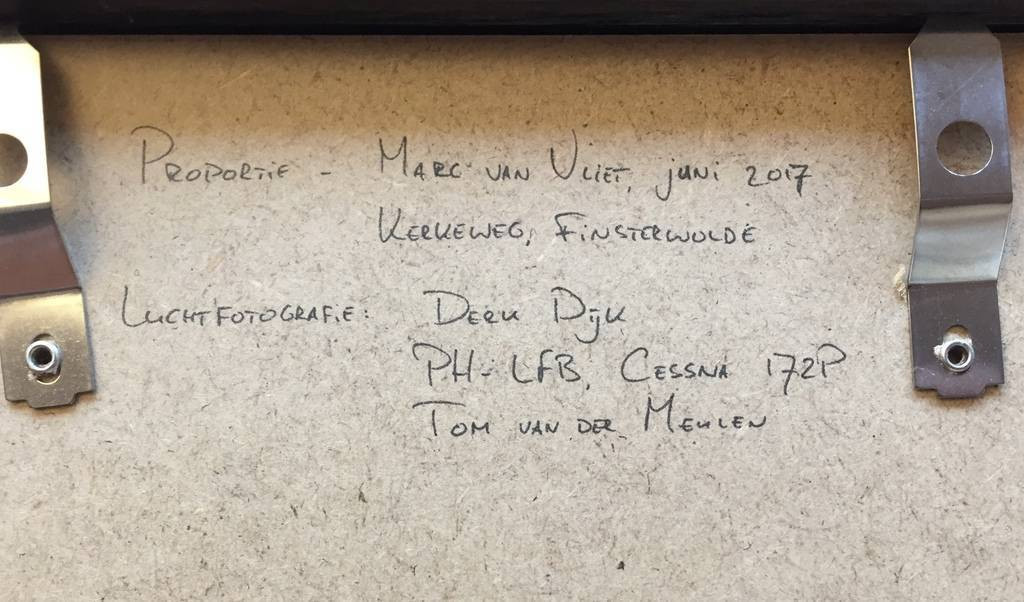 Proportie - Marc van Vliet, juni 2017
Kerkeweg, Finsterwolde
Luchtfotografie: Derk Dijk
PH-LFB, Cessna 172P
Tom van der Meulen